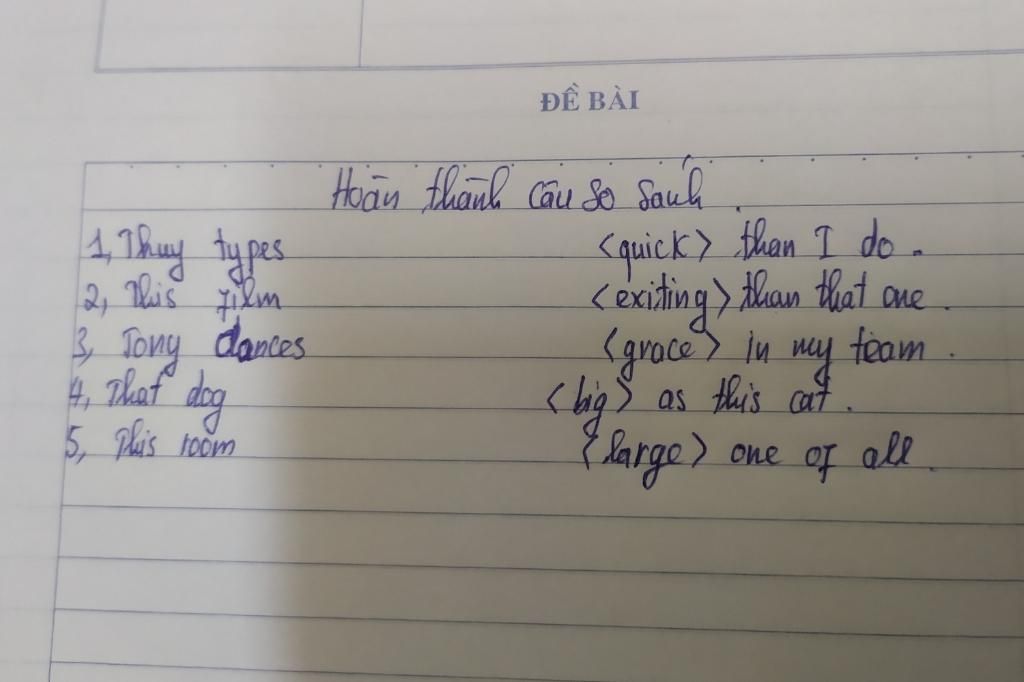 ĐỀ BÀI
Hoàn thành câu so sánh.
1, Thuy types <quick> than I do.
2, This film <exiting> than that one.
3, Tony dances <grace> in my team.
4, That dog <big> as this cat.
5, This room <large> one of all.